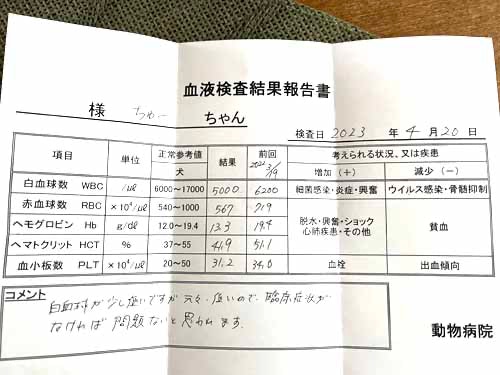 血液検査結果報告書
様 ちゃー ちゃん
検査日 2023 年 4 月 20 日
項目 単位 正常参考値 犬 結果 前回 2022 3/19 考えられる状況、又は疾患 増加(+) 減少(-)
白血球数 WBC /μl 6000~17000 5000 6200 細菌感染・炎症・興奮 ウイルス感染・骨髄抑制
赤血球数 RBC ×10⁴/μl 540~1000 567 719 脱水・興奮・ショック 心肺疾患・その他 貧血
ヘモグロビン Hb g/dl 12.0~19.4 13.3 19.4
ヘマトクリット HCT % 37~55 41.9 51.1
血小板数 PLT ×10⁴/μl 20~50 31.2 34.0 血栓 出血傾向
コメント
白血球が少し低いですが元々低いので、臨床症状が
なければ問題ないと思われます。
動物病院